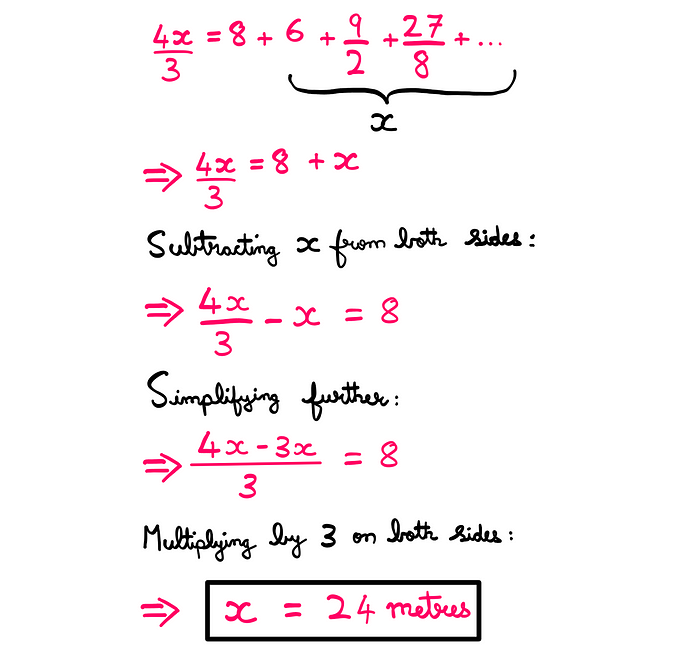 4x/3 = 8 + 6 + 9/2 + 27/8 + ...
x
⇒ 4x/3 = 8 + x
Subtracting x from both sides:
⇒ 4x/3 - x = 8
Simplifying further:
⇒ (4x - 3x)/3 = 8
Multiplying by 3 on both sides:
⇒ x = 24 metres